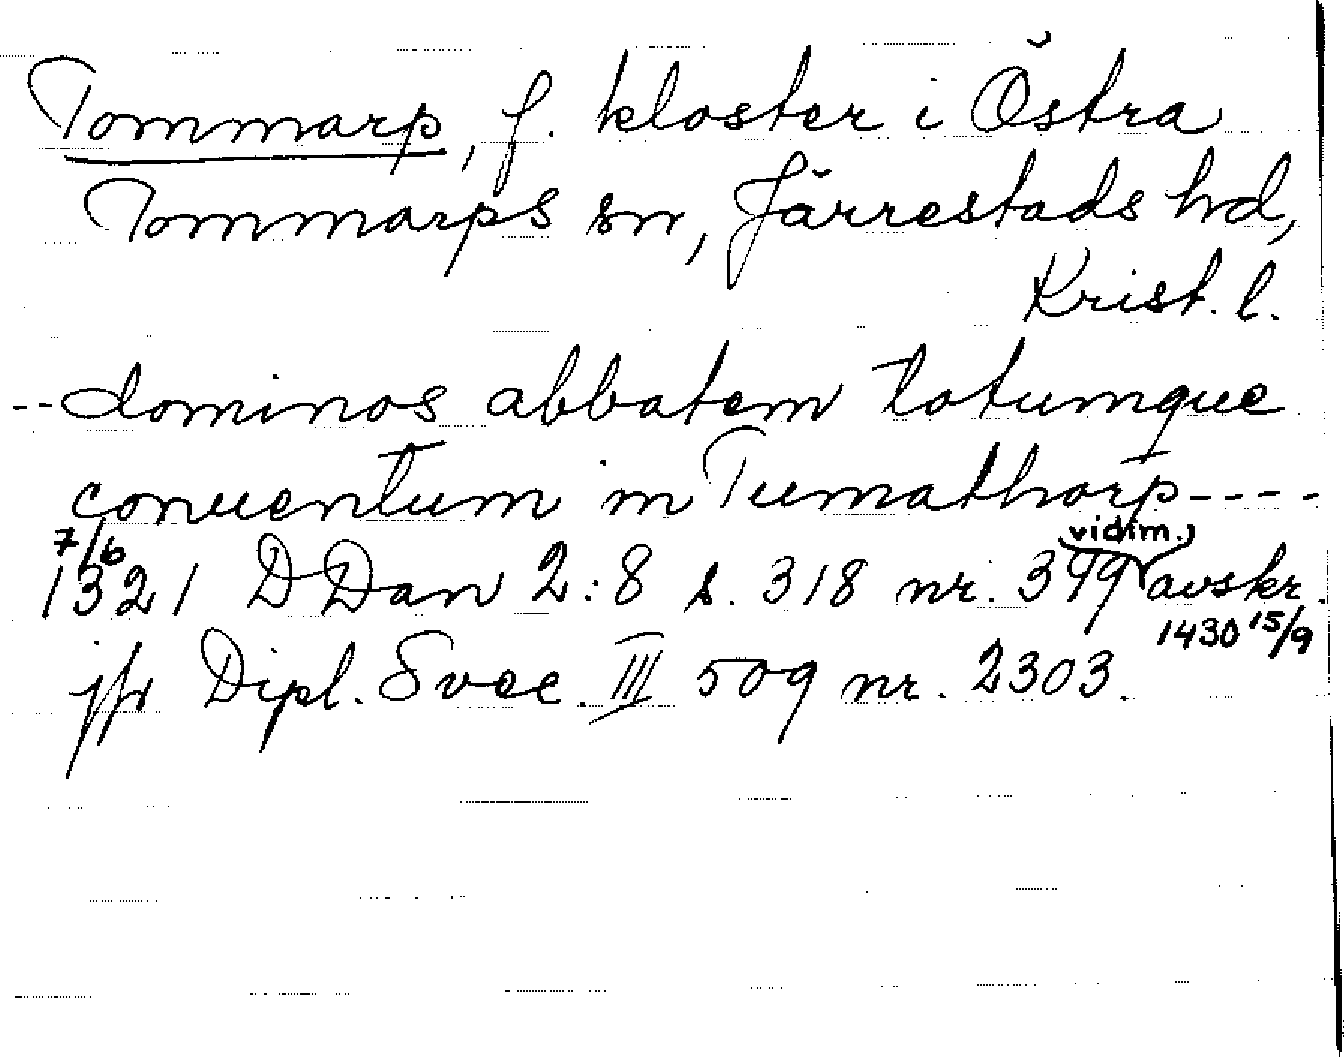 Tommarp, f. kloster i Östra
Tommarps sn, Järrestads hd,
Krist. l.
--dominos abbatem totumque
conuentum in Tumathorp----
7/6 1321 DDan 2:8 s. 318 nr. 399 vidim. avskr. 1430 15/9
jfr Dipl. Svec. III 509 nr. 2303.